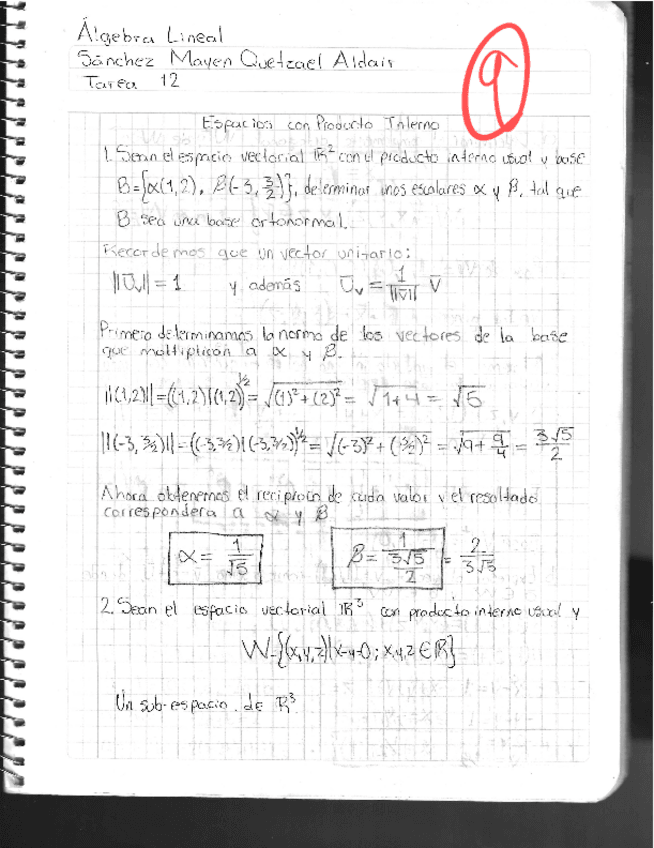 Álgebra Lineal
Sánchez Mayen Quetzael Aldair
Tarea 12
9
Espacios con Producto Interno
1. Sean el espacio vectorial ℝ² con el producto interno usual y base
B={α(1,2), β(-3, 3/2)}, determinar unos escalares α y β, tal que
B sea una base ortonormal.
Recordemos que un vector unitario:
||Ūᵥ|| = 1 y además Ūᵥ = 1/||v̄|| v̄
Primero determinamos la norma de los vectores de la base
que multiplican a α y β.
||(1,2)|| = ((1,2)|(1,2))^1/2 = √((1)²+(2)²) = √(1+4) = √5
||(-3, 3/2)|| = ((-3,3/2)|(-3,3/2))^1/2 = √((-3)²+(3/2)²) = √(9+9/4) = 3√5/2
Ahora obtenemos el reciproco de cada valor y el resultado
correspondera a α y β
α = 1/√5 β = 1/(3√5/2) = 2/3√5
2. Sean el espacio vectorial ℝ³ con producto interno usual y
W={(x,y,z)|x-y=0; x,y,z∈ℝ}
Un sub-espacio de ℝ³